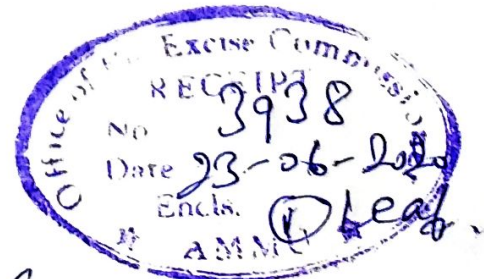 Office of the Excise Commissio
RECEIPT
No 3938
Date 23-06-2020
Encls. ① Leaf.
AMM